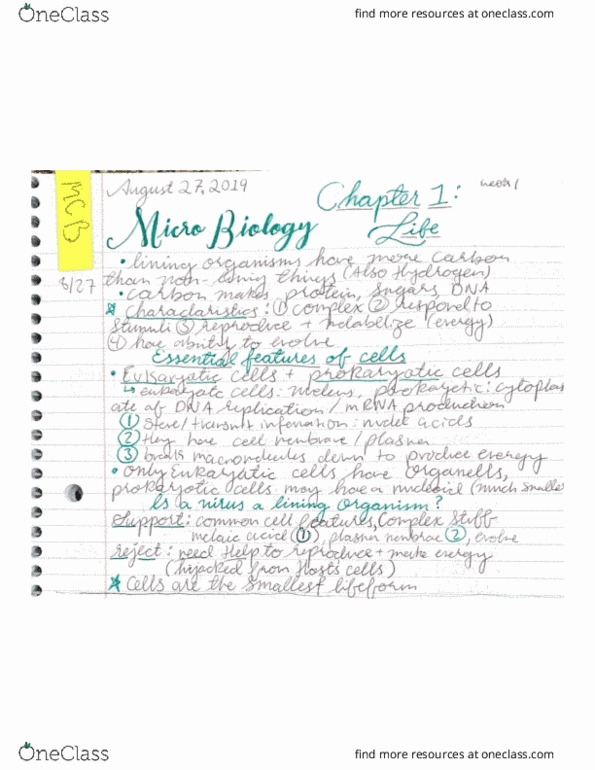 OneClass
find more resources at oneclass.com
MCB
8/27
August 27, 2019
Chapter 1:
week 1
Micro Biology
Life
• lining organisms have more carbon
than non-living things (Also Hydrogen)
• carbon makes protein, sugars DNA
* Characteristics: ① complex ② respond to
stimuli ③ reproduce + metabolize (energy)
④ have ability to evolve
Essential features of cells
• Eukaryatic cells + prokaryatic cells
↳ eukaryatic cells: nucleus, prokaryatic: cytoplas
ate of DNA replication / mRNA production
① store/transmit information: nucleic acids
② they have cell membrane / plasma
③ breaks macromolecules down to produce energy
• only Eukaryatic cells have organells,
prokaryotic cells may have a nucleoid (much smaller
Is a virus a lining organism?
Support: common cell features, Complex stuff
acid (①), plasma membrane ②, evolve
reject: need Help to reproduce + make energy
(hijacked from Hosts cells)
* Cells are the smallest lifeform
OneClass
find more resources at oneclass.com